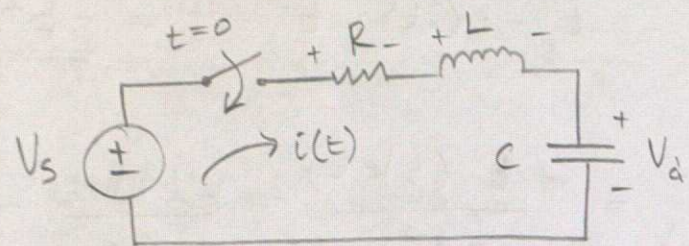 t=0
+ R - + L -
Vs + - i(t) C + -